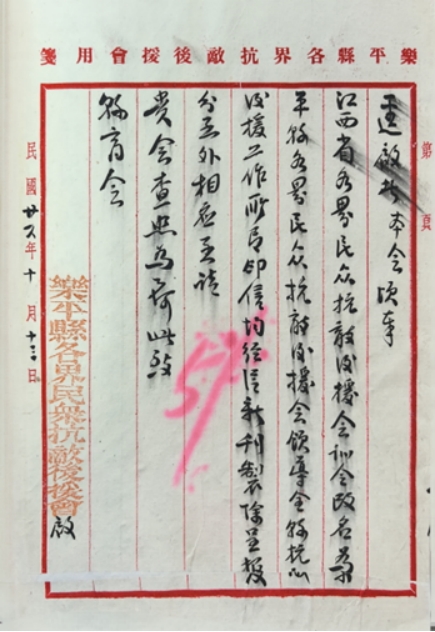 樂平縣各界抗敵後援會用箋
第 頁
逕啟者本会頃奉
江西省各界民众抗敵後援会訓令改名樂
平縣各界民众抗敵後援会領導全縣抗敵
後援工作所有印信均經從新刊製除呈報
分函外相应函請
貴会查照為荷此致
縣商会
樂平縣各界民眾抗敵後援會啟
民國廿六年十月十三日